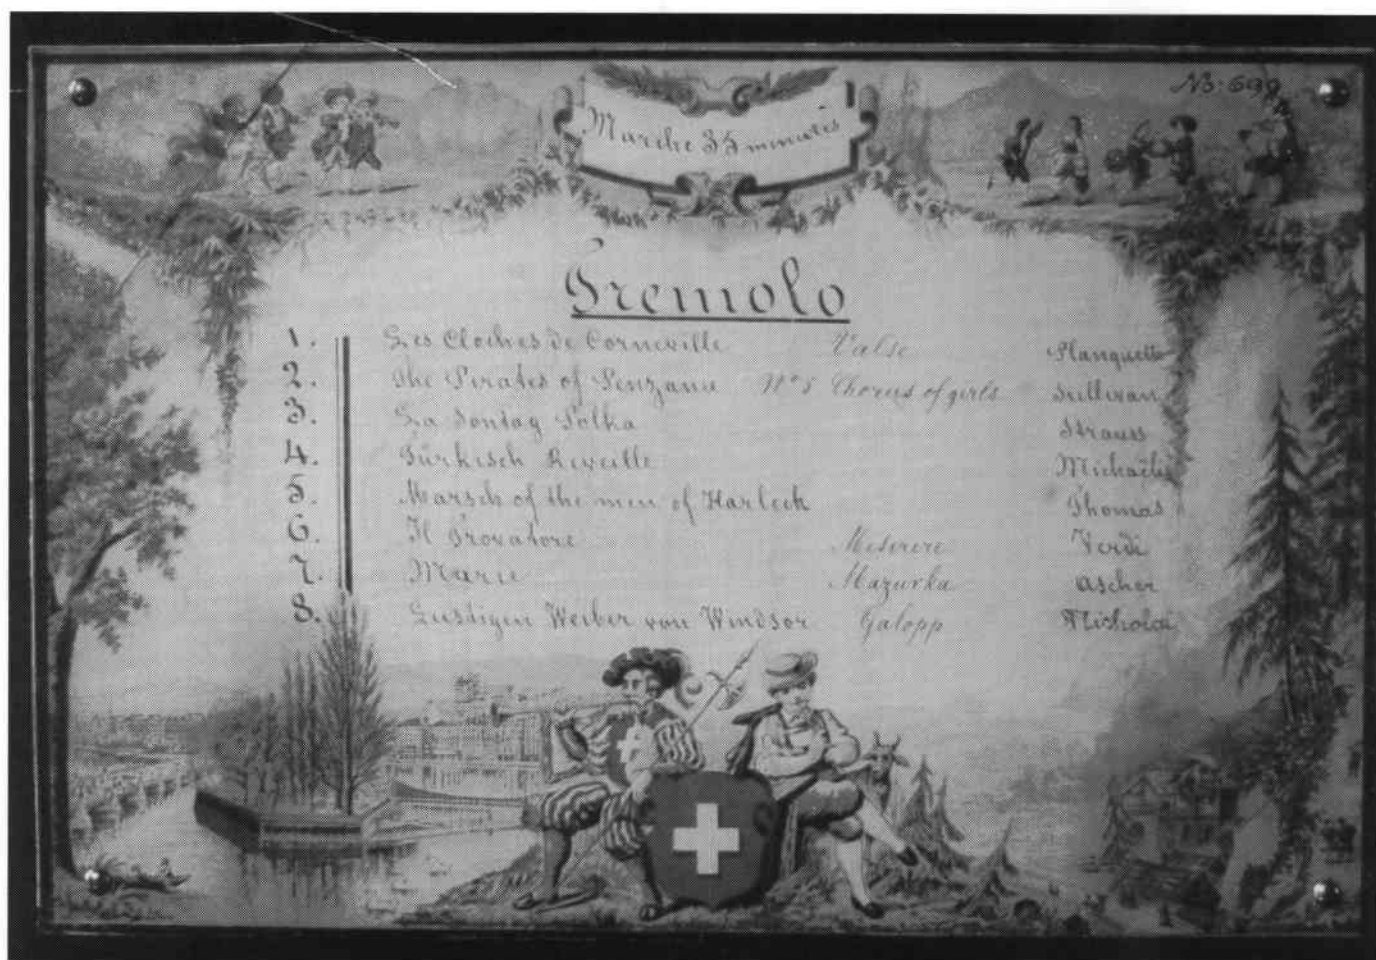 Marche 35 minutes
No: 699
Tremolo
1. Les Cloches de Corneville Valse Planquette
2. The Pirates of Penzance No 5 Chorus of girls Sullivan
3. La Sontag Polka Strauss
4. Türkisch Reveille Michaelis
5. Marsch of the men of Harlech Thomas
6. Il Trovatore Miserere Verdi
7. Marie Mazurka Ascher
8. Lustigen Weiber von Windsor Galopp Nicholai